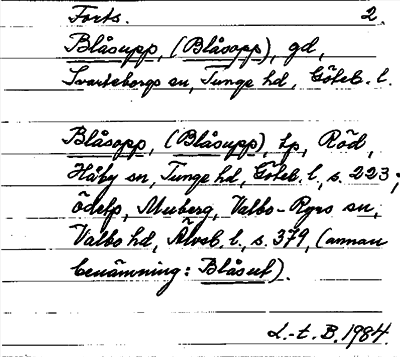 Forts. 2.
Blåsupp, (Blåsopp), gd,
Svarteborgs sn, Tunge hd, Göteb. l.
Blåsopp, (Blåsupp), tp, Röd,
Håby sn, Tunge hd, Göteb. l, s. 223;
ödetp, Muberg, Valbo-Ryrs sn,
Valbo hd, Älvsb. l. s. 379, (annan
benämning: Blåsut).
L.-t. B. 1984.